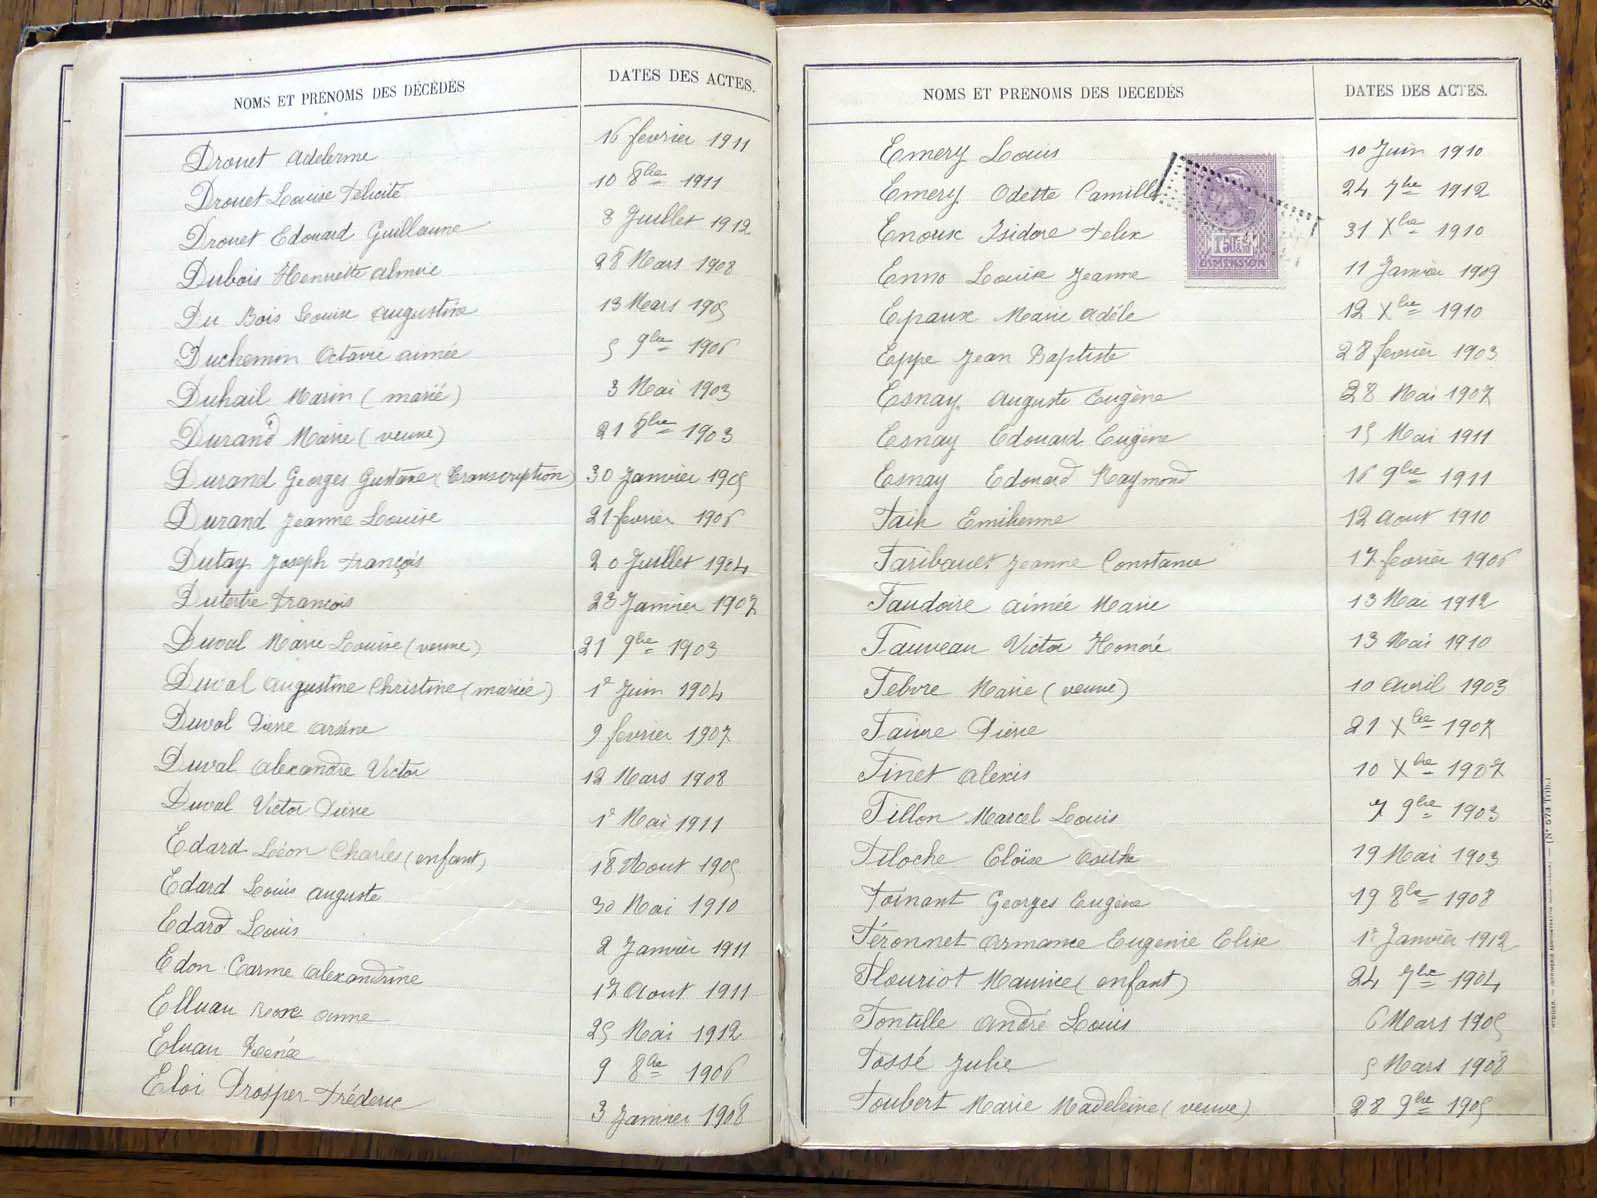 NOMS ET PRÉNOMS DES DÉCÉDÉS DATES DES ACTES.
Drouet Adelerme 16 fevrier 1911
Drouet Louise Felicité 10 8bre 1911
Drouet Edouard Guillaume 8 Juillet 1912
Dubois Henriette Almire 28 Mars 1908
Du Bois Louise Augustine 13 Mars 1905
Duchemin Octavie Aimée 5 9bre 1906
Duhail Marin (marié) 3 Mai 1903
Durand Marie (veuve) 21 8bre 1903
Durand Georges Gustave (Transcription) 30 Janvier 1905
Durand Jeanne Louise 21 fevrier 1906
Dutay Joseph François 20 Juillet 1904
Dutertre François 28 Janvier 1907
Duval Marie Louise (veuve) 21 9bre 1903
Duval Augustine Christine (mariée) 1e Juin 1904
Duval Pierre Arsène 9 fevrier 1907
Duval Alexandre Victor 12 Mars 1908
Duval Victor Pierre 1e Mai 1911
Edard Léon Charles (enfant) 18 Aout 1905
Edard Louis Auguste 30 Mai 1910
Edard Louis 2 Janvier 1911
Edon Carme Alexandrine 17 Aout 1911
Elluau Rose Anne 25 Mai 1912
Eluau Renée 9 8bre 1906
Eloi Prosper Fréderic 3 Janvier 1908
NOMS ET PRÉNOMS DES DÉCÉDÉS DATES DES ACTES.
Emery Louis 10 Juin 1910
Emery Odette Camille 24 7bre 1912
Enoux Isidore Felix 31 Xbre 1910
DIMENSION
Enno Louise Jeanne 11 Janvier 1909
Epaux Marie Adèle 12 Xbre 1910
Eppe Jean Baptiste 28 fevrier 1903
Esnay Auguste Eugène 28 Mai 1907
Esnay Edouard Eugène 15 Mai 1911
Esnay Edouard Raymond 16 9bre 1911
Faik 12 Aout 1910
Faribault Jeanne Constance 17 fevrier 1906
Faudoire Aimée Marie 13 Mai 1912
Fauveau Victor Honoré 13 Mai 1910
Febvre Marie (veuve) 10 Avril 1903
Faivre Pierre 21 Xbre 1907
Finet Alexis 10 Xbre 1907
Fillon Marcel Louis 7 9bre 1903
Filoche Eloïse 19 Mai 1903
Foinant Georges Eugène 19 8bre 1908
Féronnet Armance Eugenie Elise 1e Janvier 1912
Flouriot Maurice (enfant) 24 7bre 1904
Fontille André Louis 6 Mars 1905
Fossé Julie 5 Mars 1908
Foubert Marie Madeleine (veuve) 28 9bre 1905